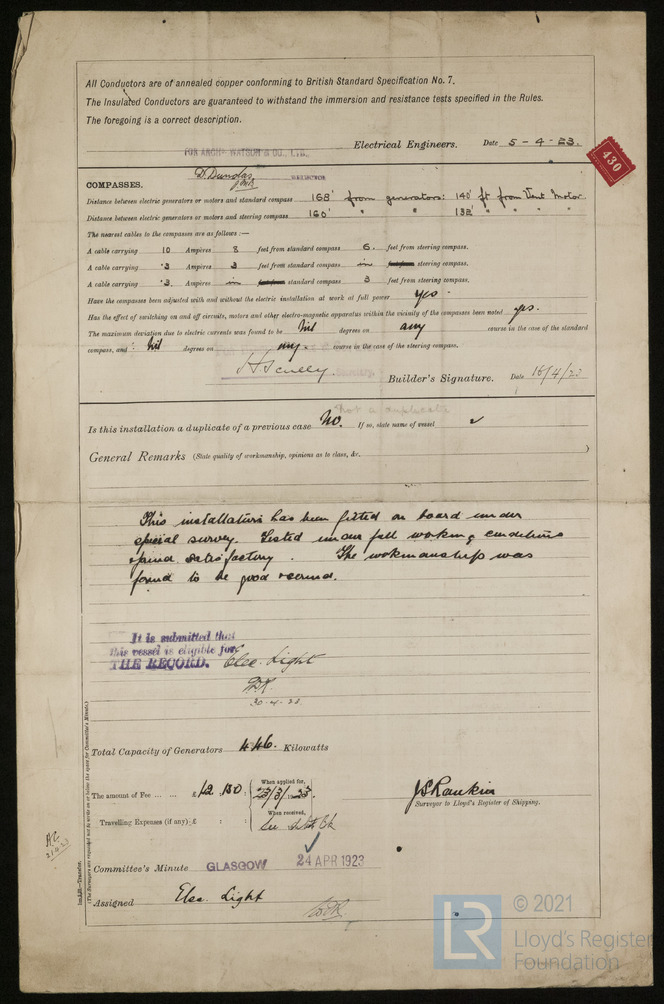 All Conductors are of annealed copper conforming to British Standard Specification No. 7.
The Insulated Conductors are guaranteed to withstand the immersion and resistance tests specified in the Rules.
The foregoing is a correct description.
FOR ARCHD WATSON & CO., LTD., Electrical Engineers. Date 5-4-23.
D. Dundas
430
COMPASSES.
Distance between electric generators or motors and standard compass 168' from generators: 140' ft from Vent Motor
Distance between electric generators or motors and steering compass 160' " " 132' " " " "
The nearest cables to the compasses are as follows:—
A cable carrying 10 Ampères 8 feet from standard compass 6. feet from steering compass.
A cable carrying .3 Ampères 3 feet from standard compass in feet from steering compass.
A cable carrying .3. Ampères in feet from standard compass 3 feet from steering compass.
Have the compasses been adjusted with and without the electric installation at work at full power yes.
Has the effect of switching on and off circuits, motors and other electro-magnetic apparatus within the vicinity of the compasses been noted yes.
The maximum deviation due to electric currents was found to be Nil degrees on any course in the case of the standard
compass, and Nil degrees on any. course in the case of the steering compass.
H Scully. Builder's Signature. Date 16/4/23
Not a duplicate
Is this installation a duplicate of a previous case No. If so, state name of vessel
General Remarks (State quality of workmanship, opinions as to class, &c. )
This installation has been fitted on board under
special survey. Tested under full working conditions
found satisfactory. The workmanship was
found to be good & sound.
It is submitted that
this vessel is eligible for
THE RECORD. Elec. Light
30-4-23
Total Capacity of Generators 446. Kilowatts
The amount of Fee ... ... £12 : 10 : 0 : When applied for, 23/3/1923.
Travelling Expenses (if any) £ : : When received,
JS Rankin
Surveyor to Lloyd's Register of Shipping.
Committee's Minute GLASGOW 24 APR 1923
Assigned Elec. Light
Im.5,19—Transfer.
(The Surveyors are requested not to write on or below the space for Committee's Minute.)
© 2021
LR
Lloyd's Register
Foundation